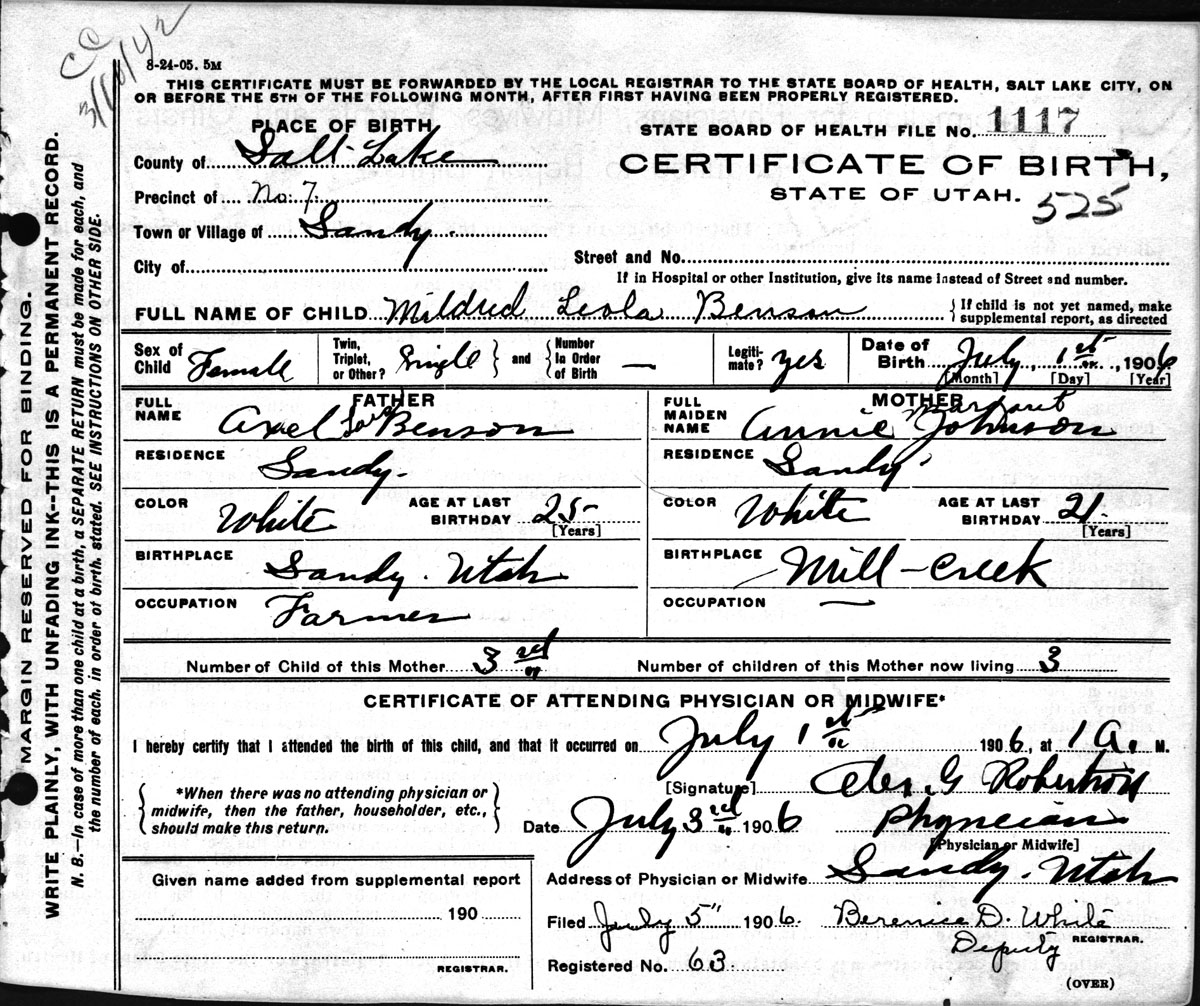 CC
3/10/42
8-24-05. 5M
THIS CERTIFICATE MUST BE FORWARDED BY THE LOCAL REGISTRAR TO THE STATE BOARD OF HEALTH, SALT LAKE CITY, ON
OR BEFORE THE 5TH OF THE FOLLOWING MONTH, AFTER FIRST HAVING BEEN PROPERLY REGISTERED.
PLACE OF BIRTH
STATE BOARD OF HEALTH FILE No. 1117
County of Salt Lake
CERTIFICATE OF BIRTH,
Precinct of No. 7.
STATE OF UTAH.
525
Town or Village of Sandy.
City of
Street and No.
If in Hospital or other Institution, give its name instead of Street and number.
FULL NAME OF CHILD Mildred Leola Benson { If child is not yet named, make
supplemental report, as directed
Sex of Child Female
Twin, Triplet, or Other? Single } and { Number In Order of Birth —
Legiti-mate? yes
Date of Birth July, 1st, 1906
[Month] [Day] [Year]
FATHER
FULL NAME Axel Benson
RESIDENCE Sandy.
COLOR White AGE AT LAST BIRTHDAY 25 [Years]
BIRTHPLACE Sandy. Utah
OCCUPATION Farmer
MOTHER
FULL MAIDEN NAME Annie Margaret Johnson
RESIDENCE Sandy.
COLOR White AGE AT LAST BIRTHDAY 21. [Years]
BIRTHPLACE Mill-Creek
OCCUPATION —
Number of Child of this Mother 3rd Number of children of this Mother now living 3
CERTIFICATE OF ATTENDING PHYSICIAN OR MIDWIFE*
I hereby certify that I attended the birth of this child, and that it occurred on July 1st 1906, at 1 A. M.
{ *When there was no attending physician or
midwife, then the father, householder, etc.,
should make this return. }
[Signature] G Robertson
Date July 3rd 1906 Physician
[Physician or Midwife]
Address of Physician or Midwife Sandy. Utah
Given name added from supplemental report
190
REGISTRAR.
Filed July 5" 1906. Berenice D. White
Deputy REGISTRAR.
Registered No. 63
(OVER)
MARGIN RESERVED FOR BINDING.
WRITE PLAINLY, WITH UNFADING INK--THIS IS A PERMANENT RECORD.
N. B.—In case of more than one child at a birth, a SEPARATE RETURN must be made for each, and
the number of each, in order of birth, stated. SEE INSTRUCTIONS ON OTHER SIDE.